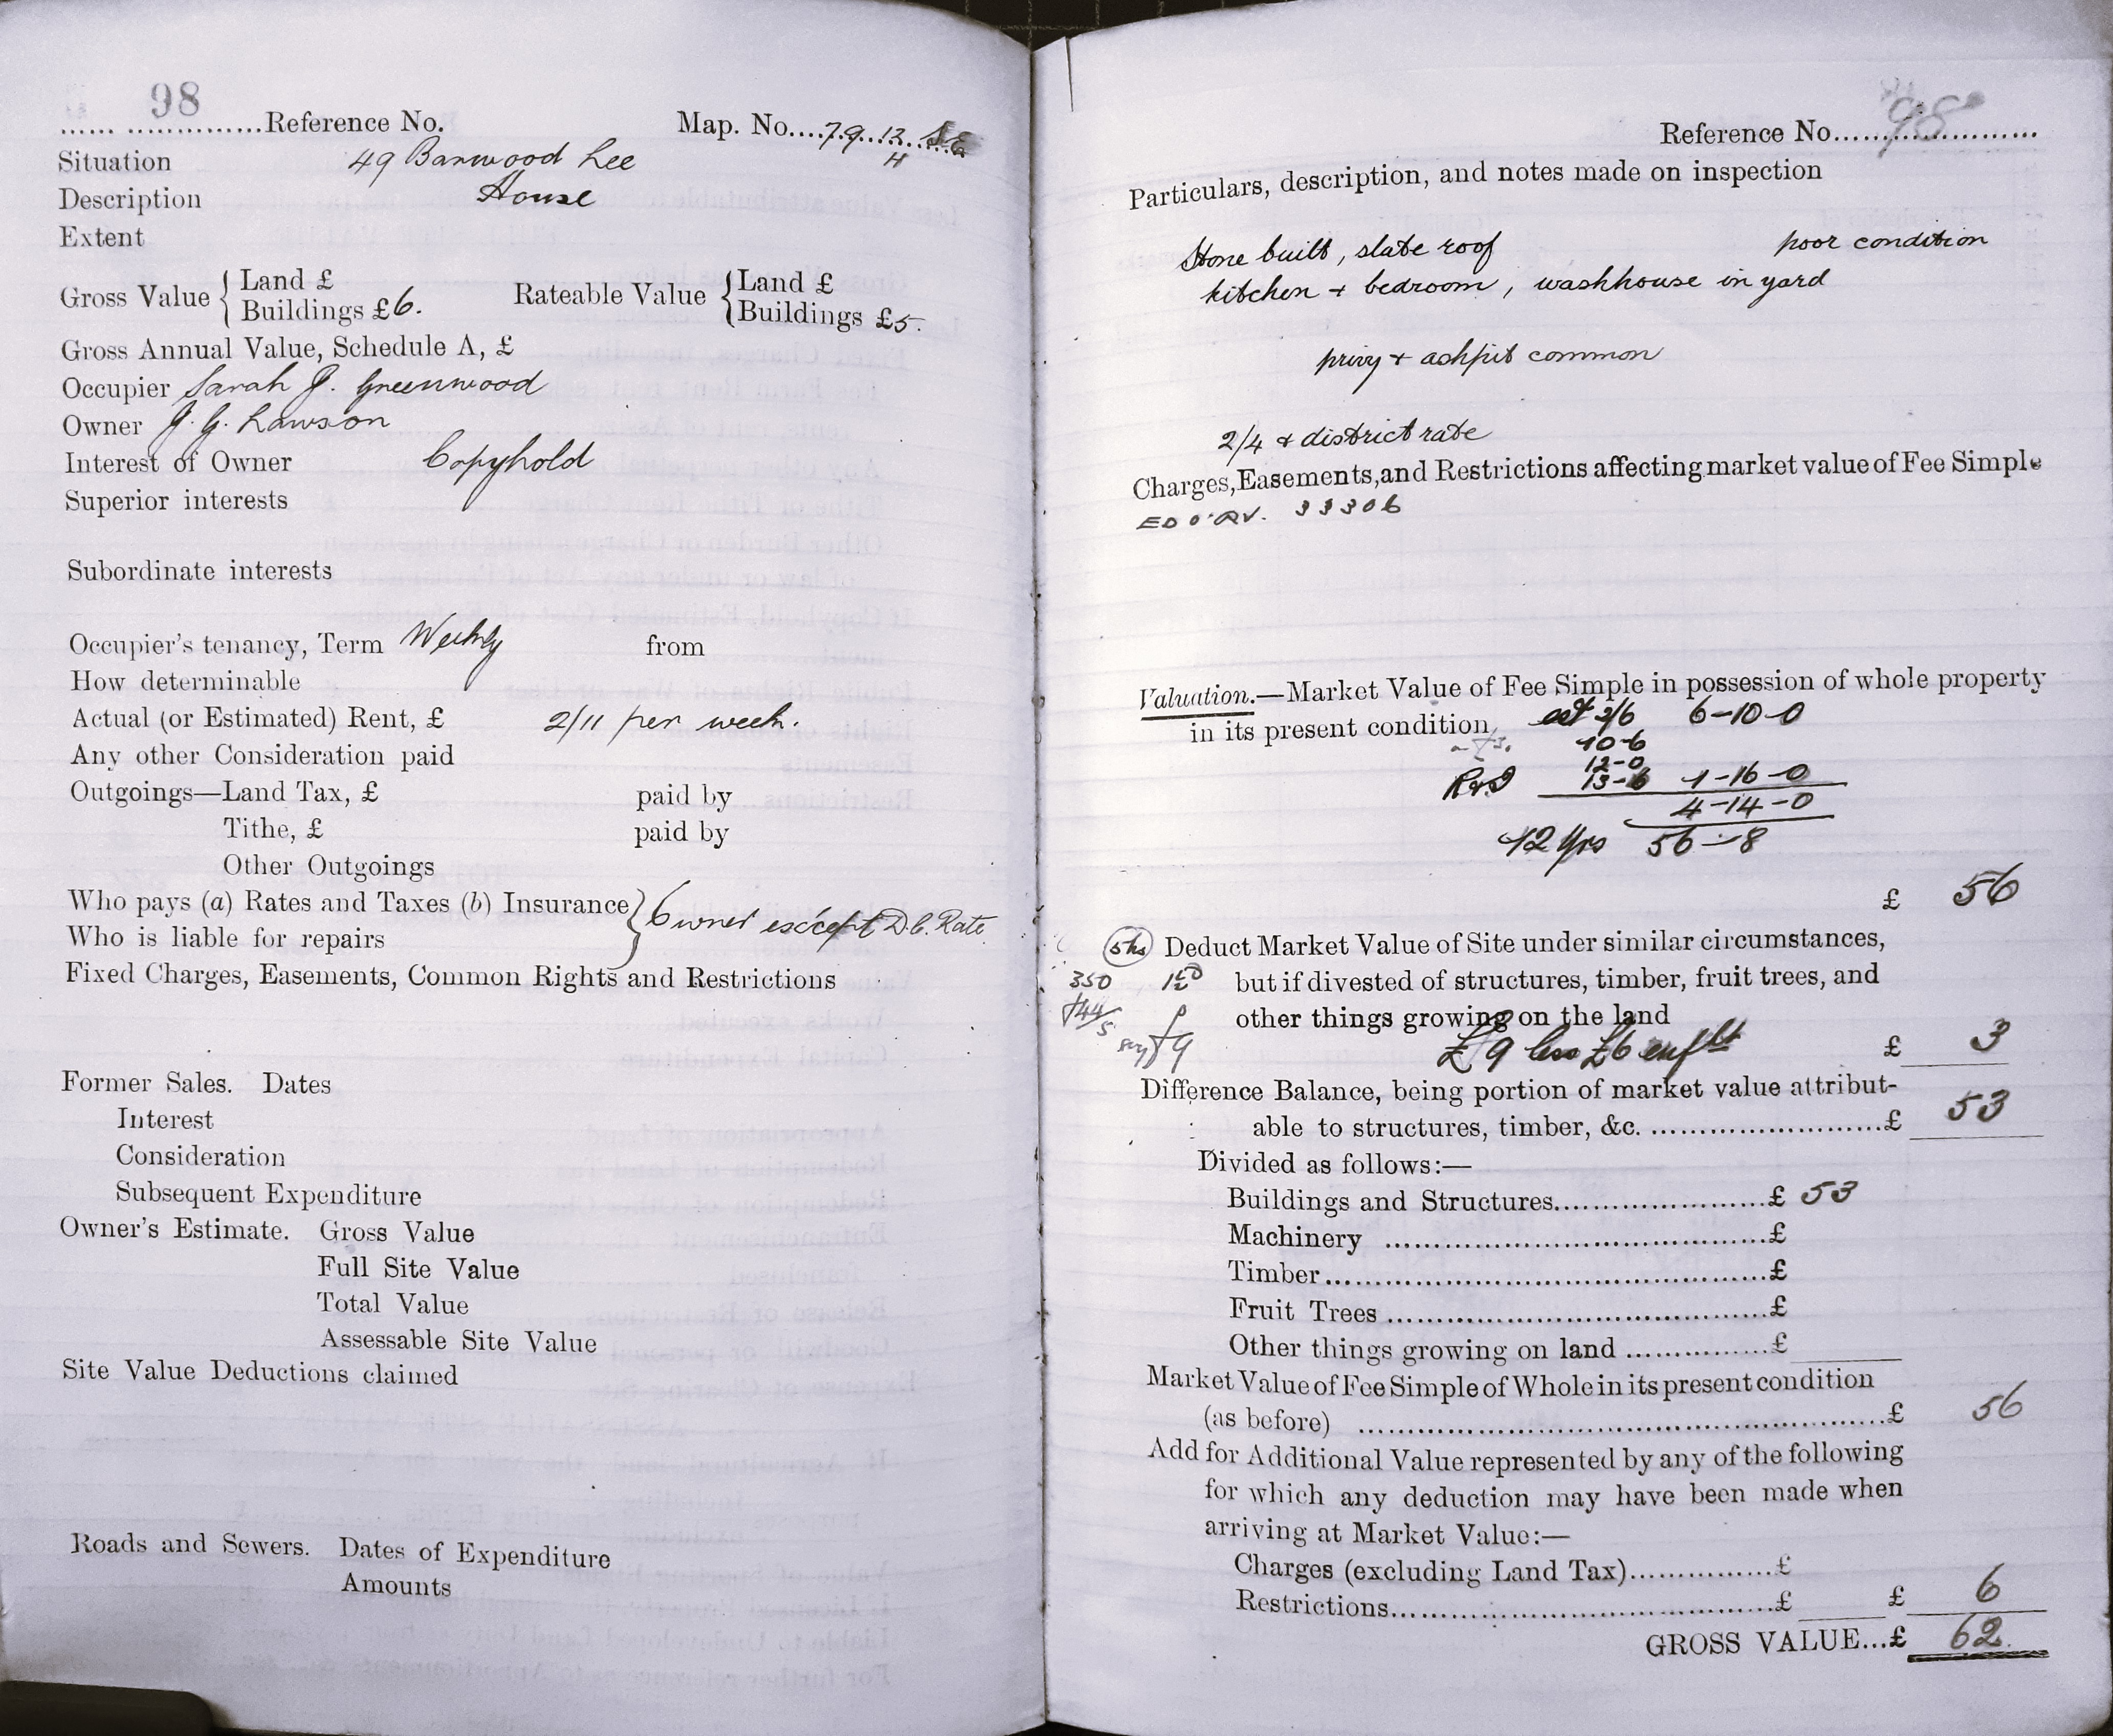 98
Reference No. Map. No. 79.12.
H
Situation 49 Banwood Lee
Description House
Extent
Gross Value { Land £
Buildings £6.
Rateable Value { Land £
Buildings £5.
Gross Annual Value, Schedule A, £
Occupier Sarah J. Greenwood
Owner J. G. Lawson
Interest of Owner Copyhold
Superior interests
Subordinate interests
Occupier's tenancy, Term Weekly from
How determinable
Actual (or Estimated) Rent, £ 2/11 per week.
Any other Consideration paid
Outgoings—Land Tax, £ paid by
Tithe, £ paid by
Other Outgoings
Who pays (a) Rates and Taxes (b) Insurance
Who is liable for repairs
} Owner except D.C. Rate
Fixed Charges, Easements, Common Rights and Restrictions
Former Sales. Dates
Interest
Consideration
Subsequent Expenditure
Owner's Estimate. Gross Value
Full Site Value
Total Value
Assessable Site Value
Site Value Deductions claimed
Roads and Sewers. Dates of Expenditure
Amounts
Reference No. 98
Particulars, description, and notes made on inspection
Stone built, slate roof poor condition
kitchen + bedroom, washhouse in yard
privy + ashpit common
2/4 + district rate
Charges, Easements, and Restrictions affecting market value of Fee Simple
33306
Valuation.—Market Value of Fee Simple in possession of whole property
in its present condition est 2/6 6-10-0
10-6
12-0
13-6 1-16-0
4-14-0
12 Yrs 56-8
£ 56
Deduct Market Value of Site under similar circumstances,
350 but if divested of structures, timber, fruit trees, and
other things growing on the land
say £9
£9 less £6 enft £ 3
Difference Balance, being portion of market value attribut-
able to structures, timber, &c. £ 53
Divided as follows:—
Buildings and Structures £ 53
Machinery £
Timber £
Fruit Trees £
Other things growing on land £
Market Value of Fee Simple of Whole in its present condition
(as before) £ 56
Add for Additional Value represented by any of the following
for which any deduction may have been made when
arriving at Market Value:—
Charges (excluding Land Tax) £
Restrictions £ £ 6
GROSS VALUE...£ 62